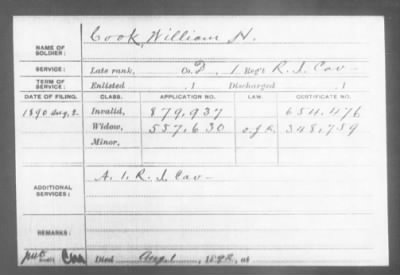 Cook, William H.
NAME OF SOLDIER:
SERVICE: Late rank, Co. D, 1 Reg't R. I. Cav
TERM OF SERVICE: Enlisted , 1 Discharged , 1
DATE OF FILING. CLASS. APPLICATION NO. LAW. CERTIFICATE NO.
1890 Aug, 2. Invalid, 879,937 654,476
Widow, 557,630 348,759
Minor,
ADDITIONAL SERVICES: A. 1. R. I. Cav
REMARKS:
Died Aug. 1, 1892, at